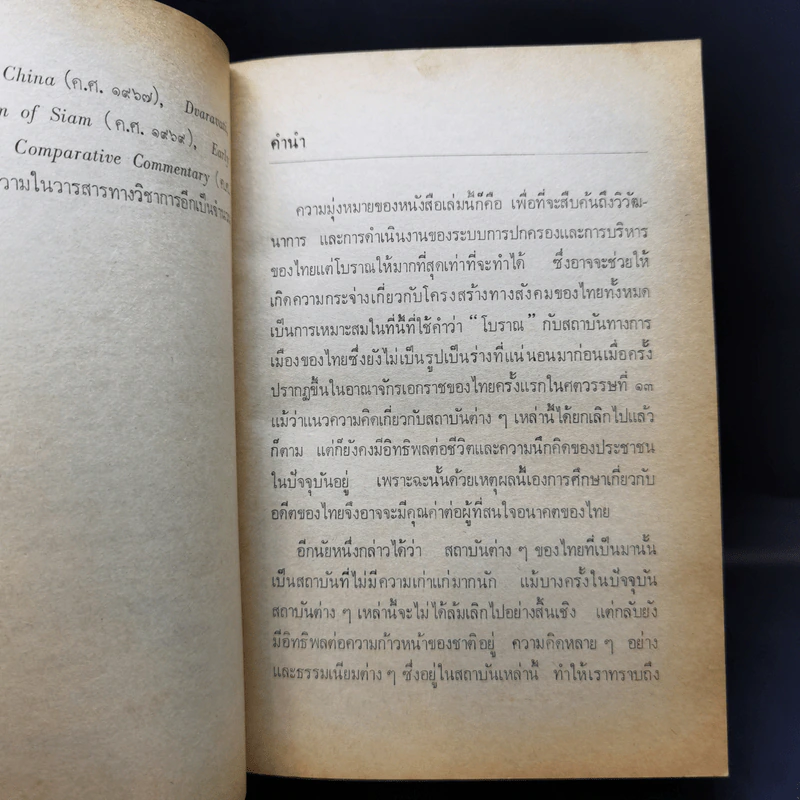 China (ค.ศ. ๑๙๖๗), Dvaravati,
of Siam (ค.ศ. ๑๙๖๙), Early
Comparative Commentary (ค.ศ.
ความในวารสารทางวิชาการอีกเป็นจำนวน
คำนำ
ความมุ่งหมายของหนังสือเล่มนี้ก็คือ เพื่อที่จะสืบค้นถึงวิวัฒ-
นาการ และการดำเนินงานของระบบการปกครองและการบริหาร
ของไทยแต่โบราณให้มากที่สุดเท่าที่จะทำได้ ซึ่งอาจจะช่วยให้
เกิดความกระจ่างเกี่ยวกับโครงสร้างทางสังคมของไทยทั้งหมด
เป็นการเหมาะสมในที่นี้ที่ใช้คำว่า “โบราณ” กับสถาบันทางการ
เมืองของไทยซึ่งยังไม่เป็นรูปเป็นร่างที่แน่นอนมาก่อนเมื่อครั้ง
ปรากฏขึ้นในอาณาจักรเอกราชของไทยครั้งแรกในศตวรรษที่ ๑๓
แม้ว่าแนวความคิดเกี่ยวกับสถาบันต่าง ๆ เหล่านี้ได้ยกเลิกไปแล้ว
ก็ตาม แต่ก็ยังคงมีอิทธิพลต่อชีวิตและความนึกคิดของประชาชน
ในปัจจุบันอยู่ เพราะฉะนั้นด้วยเหตุผลนี้เองการศึกษาเกี่ยวกับ
อดีตของไทยจึงอาจจะมีคุณค่าต่อผู้ที่สนใจอนาคตของไทย
อีกนัยหนึ่งกล่าวได้ว่า สถาบันต่าง ๆ ของไทยที่เป็นมานั้น
เป็นสถาบันที่ไม่มีความเก่าแก่มากนัก แม้บางครั้งในปัจจุบัน
สถาบันต่าง ๆ เหล่านี้จะไม่ได้ล้มเลิกไปอย่างสิ้นเชิง แต่กลับยัง
มีอิทธิพลต่อความก้าวหน้าของชาติอยู่ ความคิดหลาย ๆ อย่าง
และธรรมเนียมต่าง ๆ ซึ่งอยู่ในสถาบันเหล่านี้ ทำให้เราทราบถึง